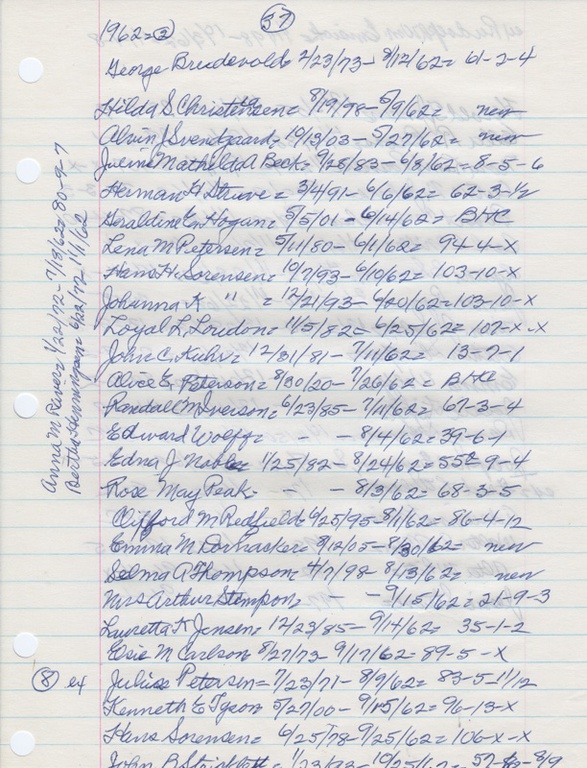 37
1962=②
George Brudevold= 2/23/73- 3/12/62= 61-2-4
Hilda S. Christensen= 8/19/78- 5/9/62= new
Alvin J Svendgaard= 10/13/03- 5/27/62= new
Juline Mathilda Beck= 9/28/83- 6/8/62= 8-5-6
Herman H Struve= 3/4/91- 6/6/62= 62-3-1/2
Geraldine E. Hogan= 5/5/01- 6/14/62=
Lena M Petersen= 5/11/80- 6/1/62= 94-4-X
Hans H. Sorensen= 10/7/93- 6/10/62= 103-10-X
Johanna K " = 12/21/93- 6/20/62= 103-10-X
Loyal L. Loudon= 11/5/82= 6/25/62= 107-X-X
John C. = 12/31/81- 7/11/62= 13-7-1
Alice E. Peterson= 8/30/20- 7/26/62=
Randal M Iverson= 6/23/85- 7/11/62= 67-3-4
Edward Wolff= - - 8/4/62= 39-6-1
Edna J Noble= 1/25/82- 8/24/62= 9-4
Rose May Peak= - - 8/3/62= 68-3-5
Clifford M Redfield= 6/25/95- 8/1/62= 86-4-12
Emma M Dornacker= 8/12/05- 8/30/62= new
Selma A Thompson= 4/7/98- 8/13/62= new
Mrs Arthur Stempon= - - 9/15/62= 21-9-3
Lauretta K Jensen= 12/23/85- 9/14/62= 35-1-2
Elsie M Carlson= 8/27/73- 9/17/62= 89-5-X
⑧ ex Julius Petersen= 7/23/71- 8/9/62= 83-5-11/12
Kenneth E Tyson= 5/27/00- 9/15/62= 96-13-X
Hans Sorensen= 6/25/78- 9/25/62= 106-X-X
John
Anna M 1/22/72- 7/18/62= 80-9-7
Bertha Henningsen= 6/22/72- 11/1/62